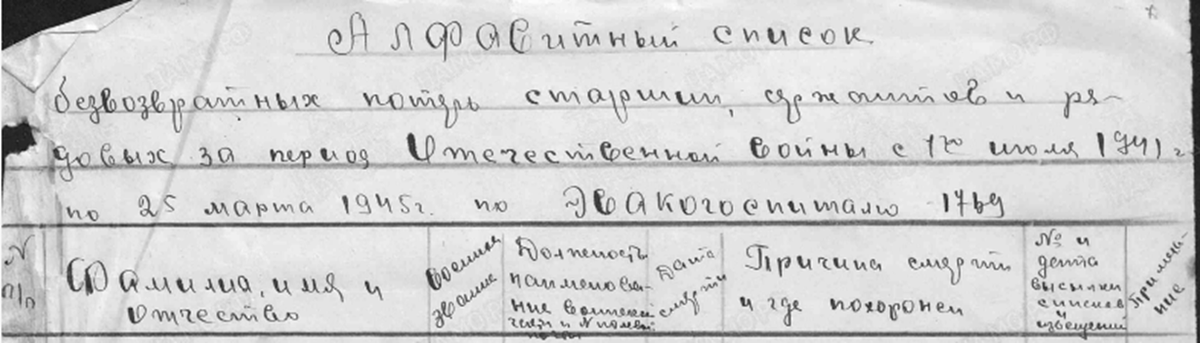 Алфавитный список
безвозвратных потерь старшин, сержантов и ря-
довых за период Отечественной войны с 1го июля 1941 г
по 25 марта 1945г. по Эвакогоспиталю 1769
N п/п
Фамилия, имя и отчество
Военная звание
Должность наименова-ние воинской части и N полевой почты
Дата смерти
Причина смерти и где похоронен
№ и дата высылки списков и извещений
Примеча-ние